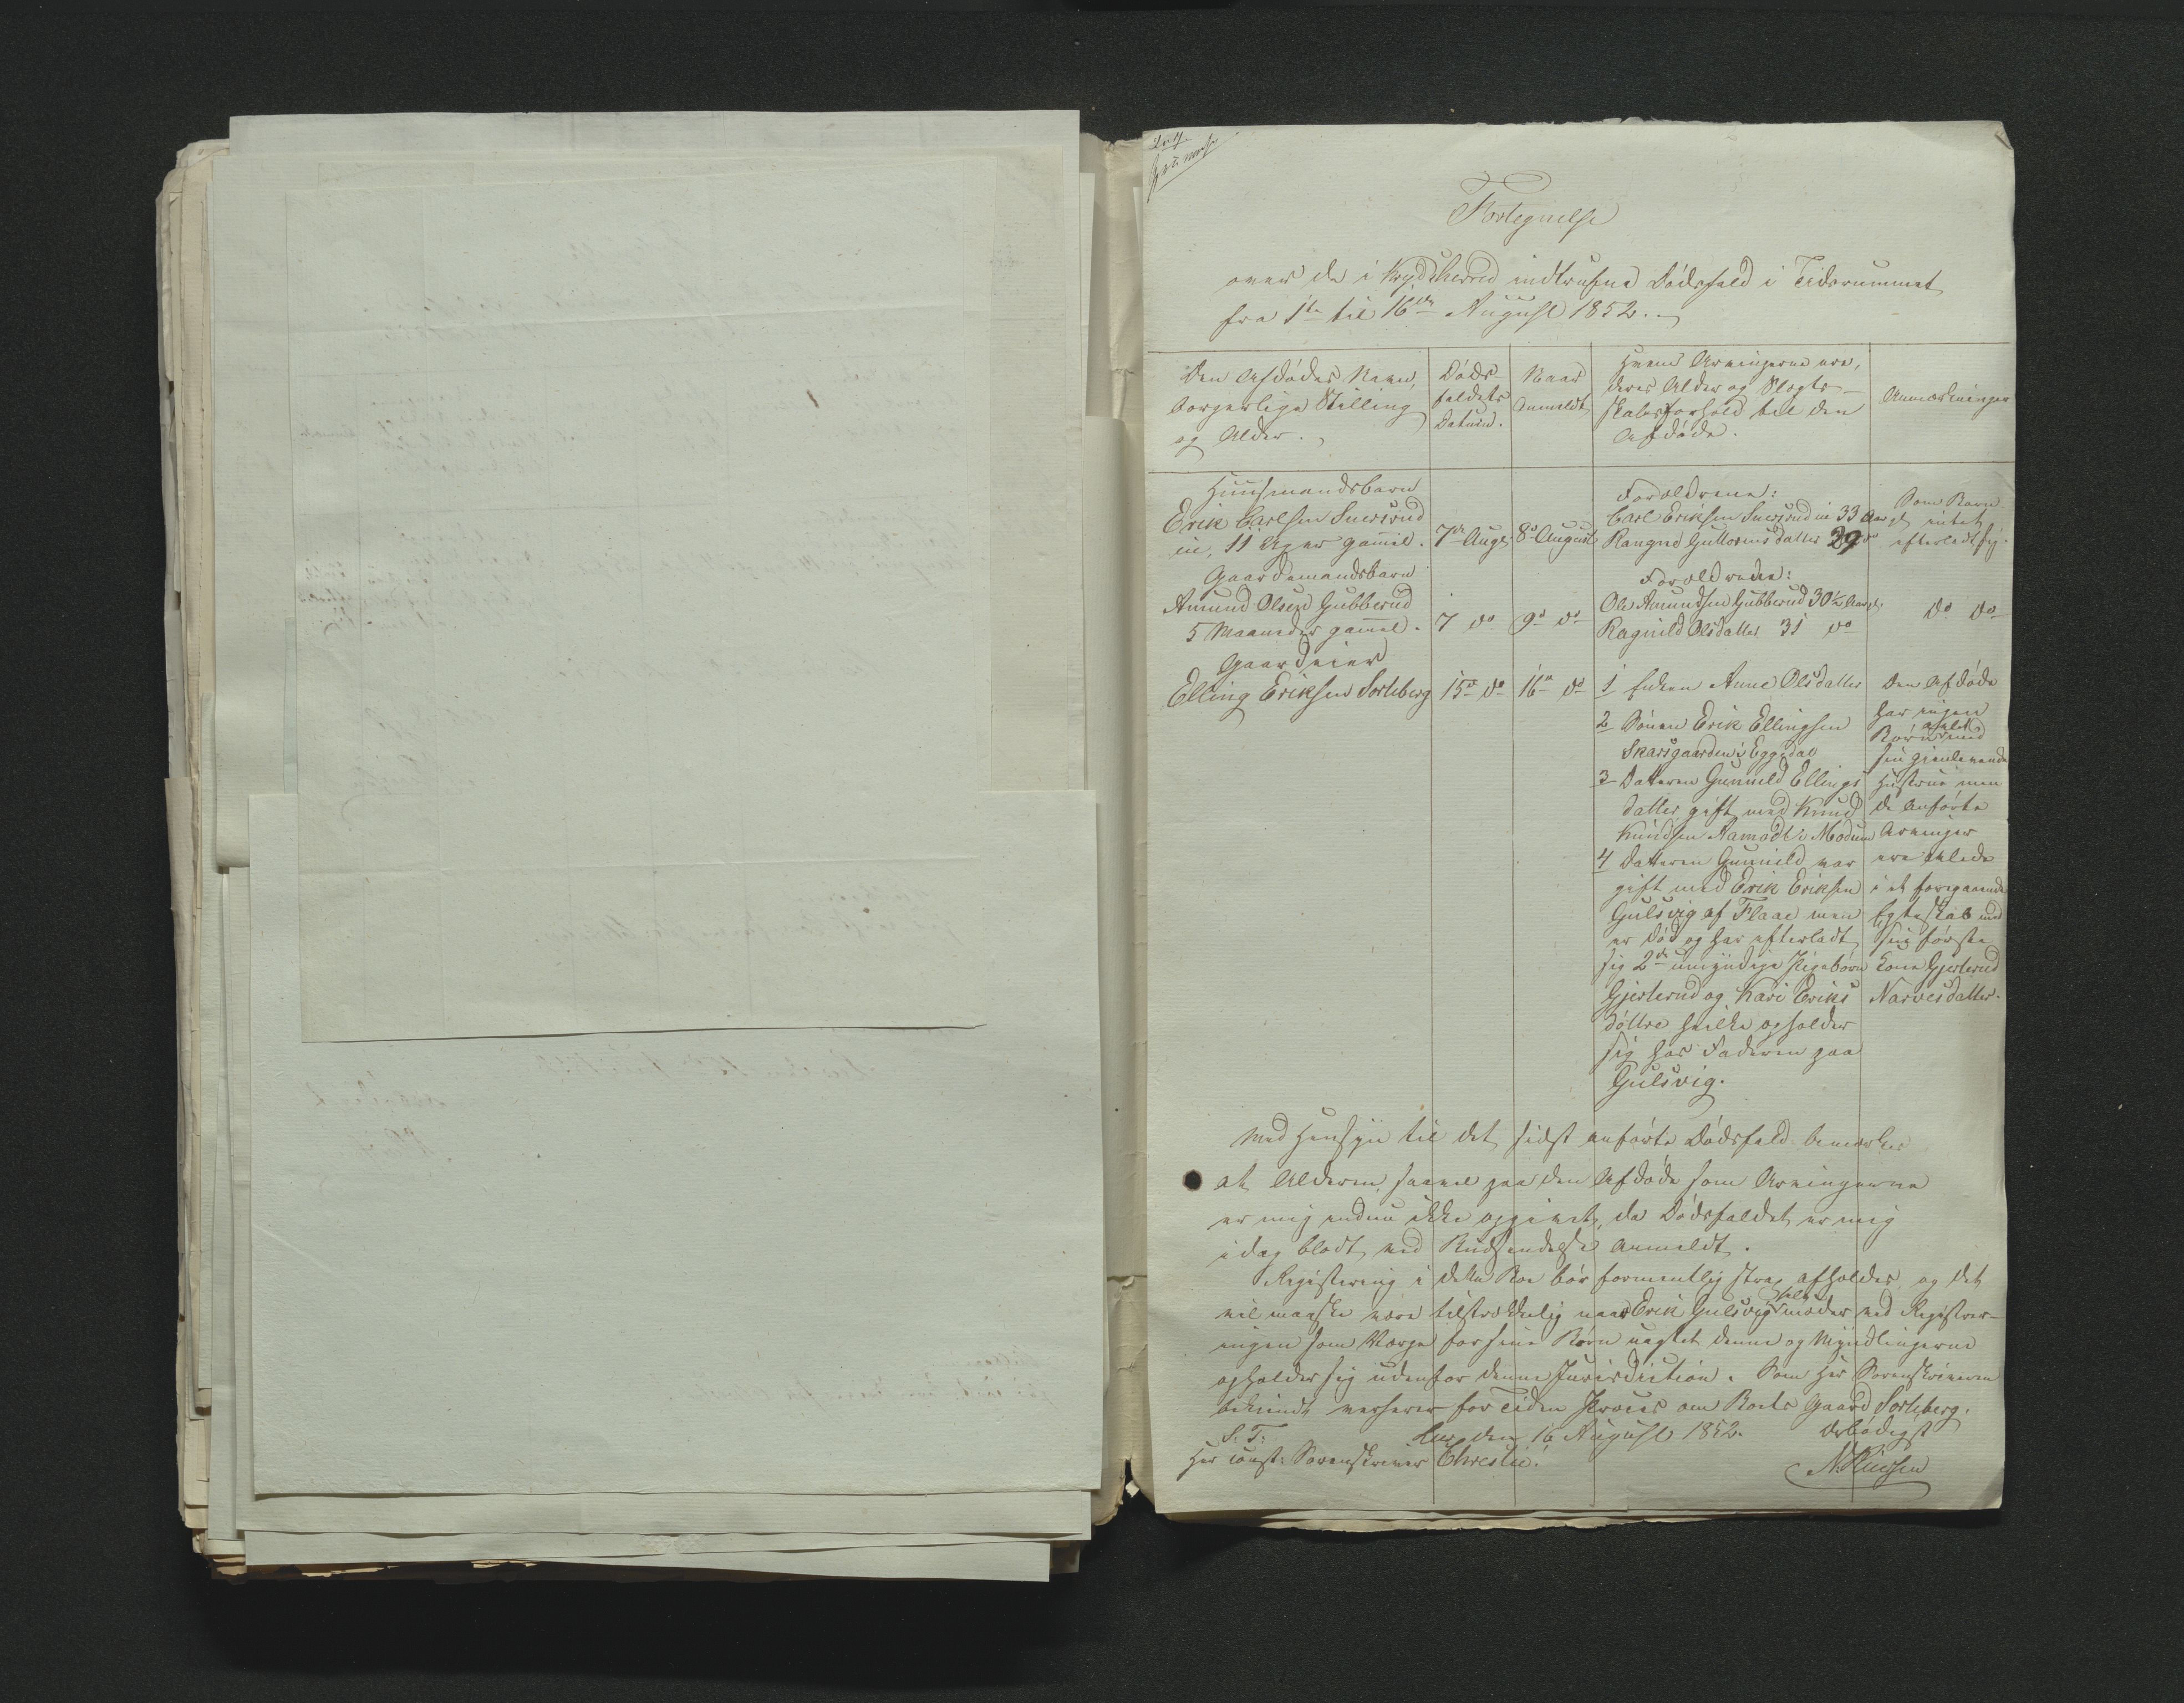 Fortegnelse
over de i Krydsherred indtrufne Dödsfald i Tidsrummet
fra 1te til 16de August 1852.
Den Afdödes Navn,
borgerlige Stilling
og Alder.
Döds-
faldets
Datum.
Naar
Anmeldt
Hvem Arvingerne ere,
deres Alder og Slægt-
skabsforhold til den
Afdöde.
Anmærkninger
Huusmandsbarn
Erik Carlsen Snersrud
ie, 11 Uger gammel.
7de Aug.
8de August
Forældrene:
Carl Eriksen Snersrud ie 33 Aar gl.
Rangnd Guttormsdatter 29 do
Som Barn
intet
efterladt sig.
Gaardmandsbarn
Amund Olsen Gubberud
5 Maaneder gammel.
7 do
9de do
Forældrene:
Ole Amundsen Gubberud 30½ Aar gl.
Ragnild Olsdatter 31 do
do do
Gaardeier
Elling Eriksen Sorteberg
15de do
16de do
1 Enken Anne Olsdatter
2 Sönnen Erik Ellingsen
Skarsgaarden i Eggedal
3 Datteren Gunnild Ellings
datter gift med Knud
Knudsen Aamodt i Modum
4 Datteren Gunnild var
gift med Erik Eriksen
Gulsvig af Flaae men
er död og har efterladt
sig 2de umyndige Pigebörn
Gjertrud og Kari Eriks
döttre hvilke opholder
sig hos Faderen paa
Gulsvig.
Den Afdöde
har ingen
Börn avlet med
sin gjenlevende
Hustrue men
de anförte
Arvinger
ere avlede
i et foregaaende
Egteskab med
sin förste
Kone Gjertrud
Narvesdatter.
Med Hensyn til det sidst anförte Dödsfald bemærkes
at Alderen, saavel paa den Afdöde som Arvingerne
er mig endnu ikke opgivet, da Dödsfaldet er mig
idag blodt ved Budsendelse anmeldt.
Registrering i dette Boe bör formentlig strax afholdes, og det
vil maaske være tilstrækkelig naar Erik Gulsvig selv möder ved Registrer-
ingen som Værge for sine Börn uagtet denne og Myndlingerne
opholder sig udenfor denne Jurisdiction. Som Hr Sorenskriveren
bekiendt verserer for Tiden Proces om Boets Gaard Sorteberg.
S. T.
den 16 August 1852.
Erbödigst
Hr const: Sorenskriver Christie!